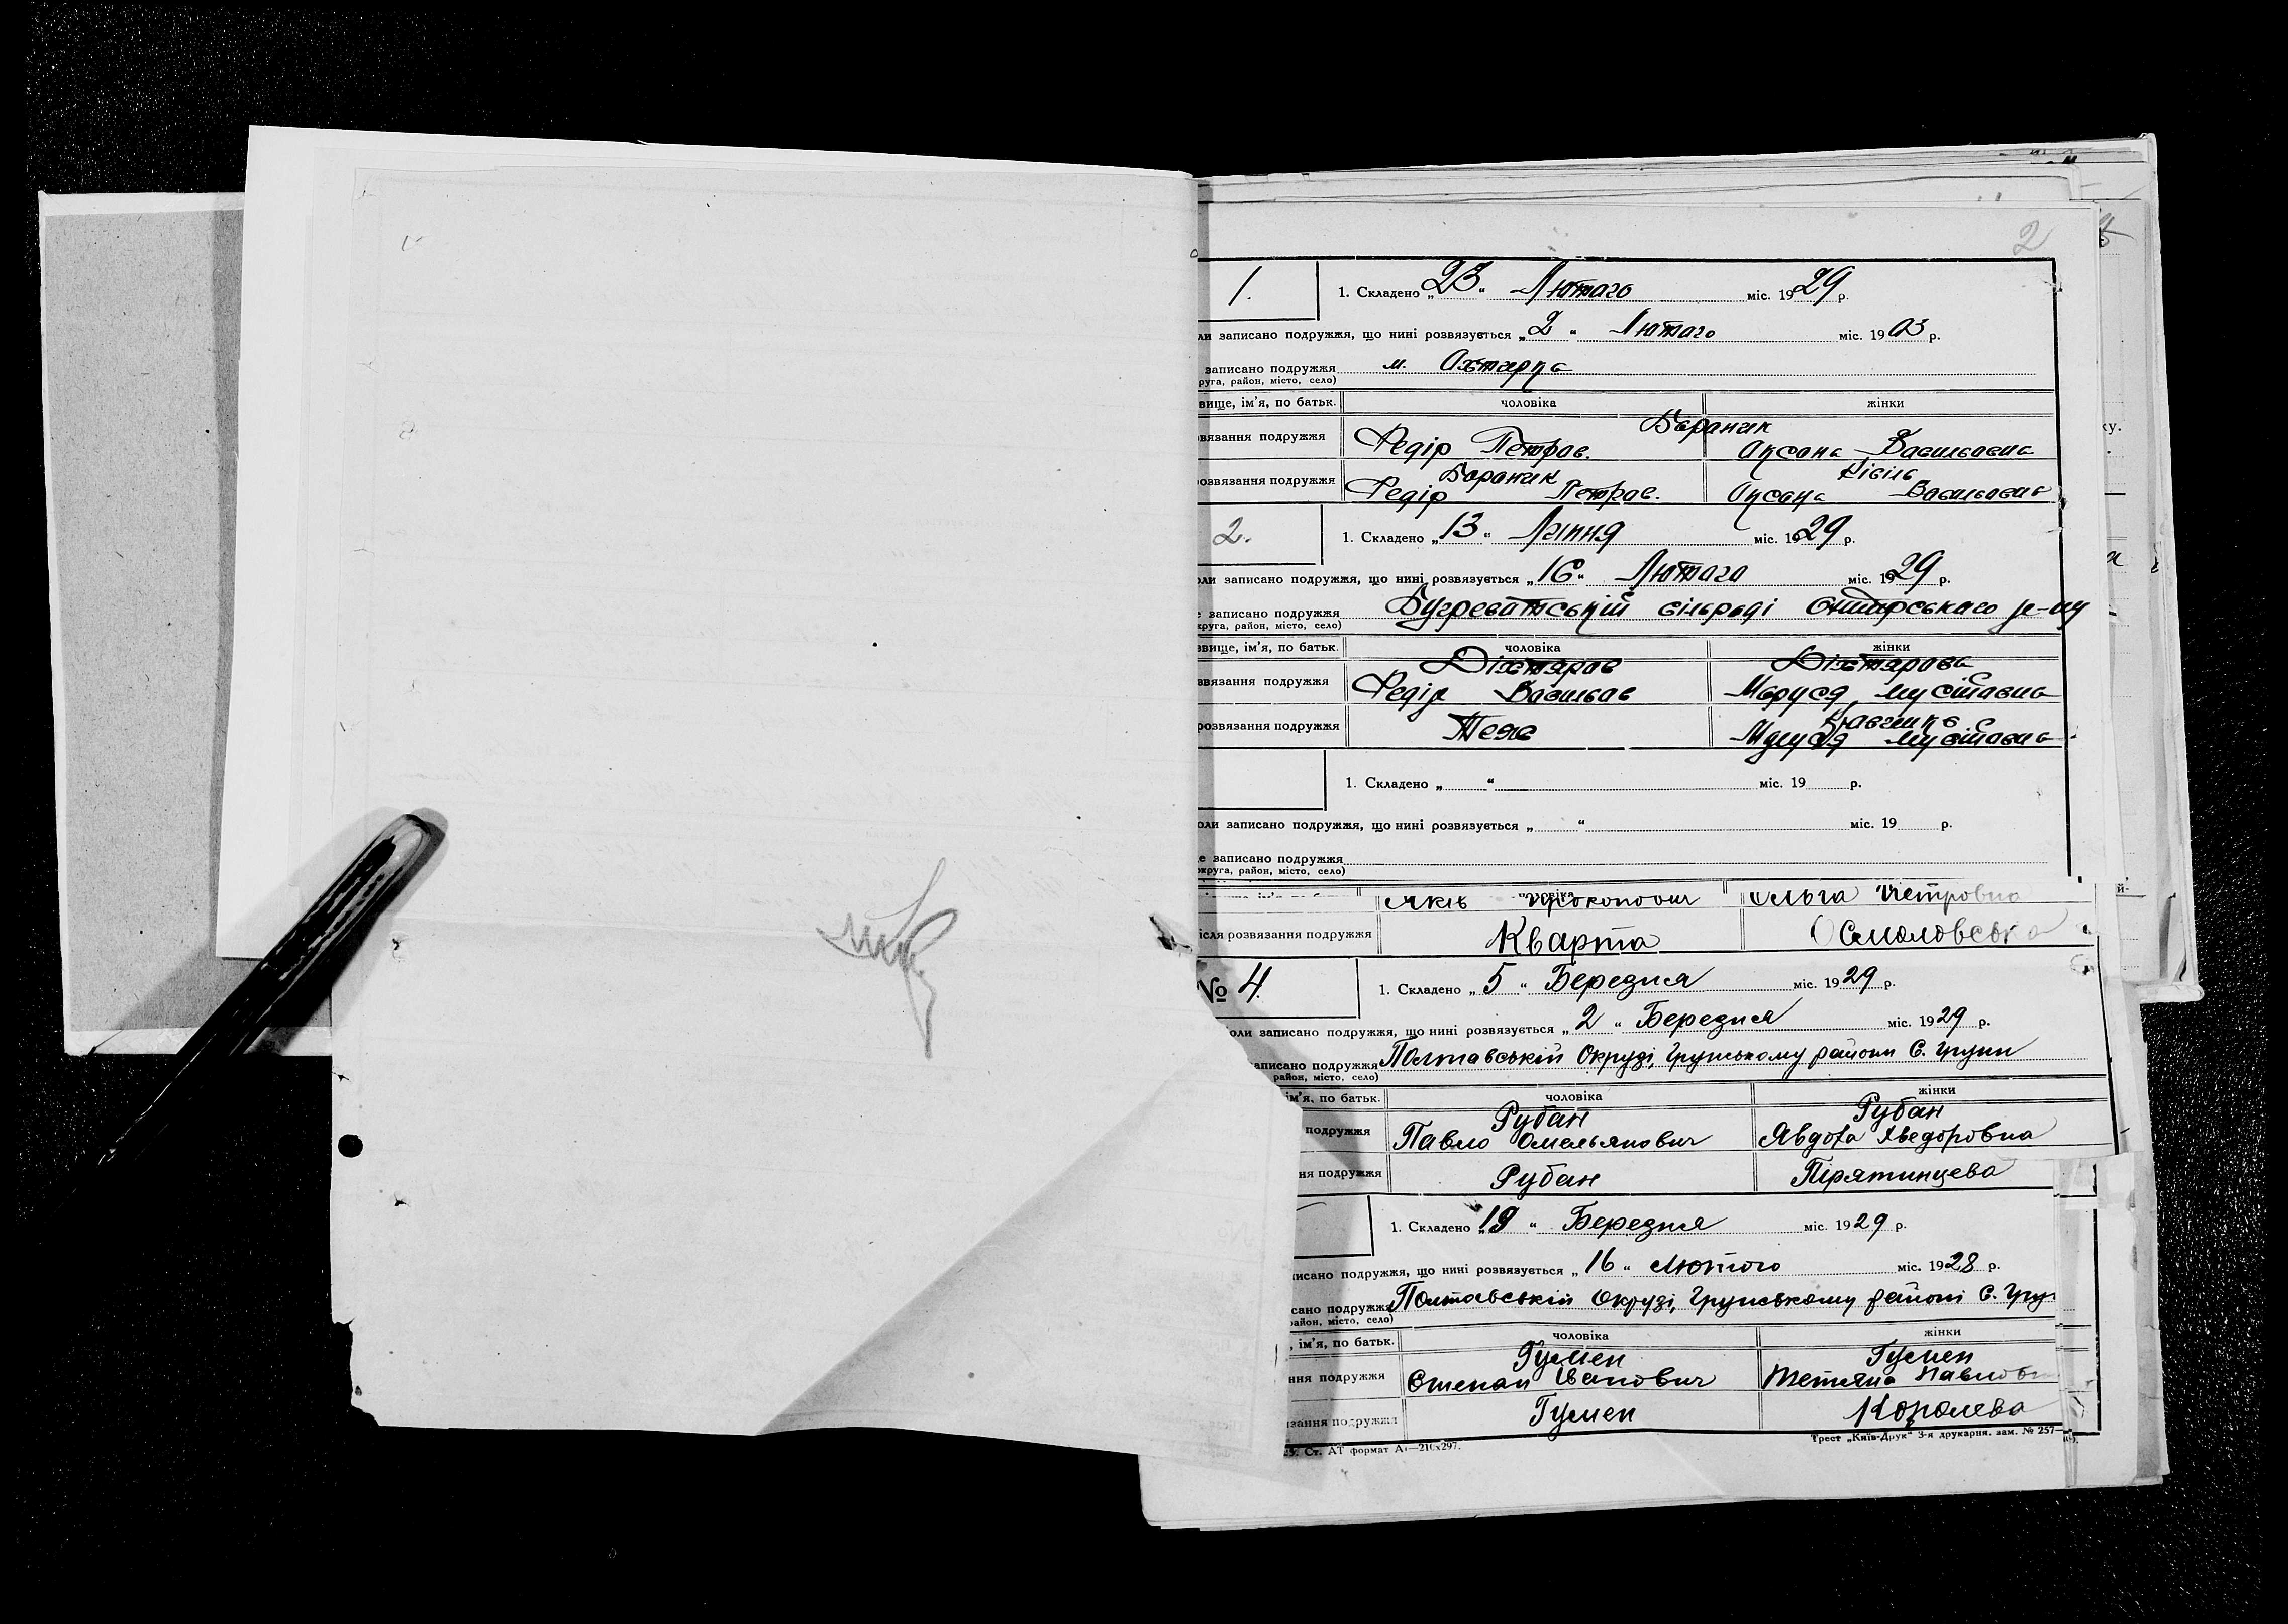 2
1.
1. Складено „23“ Лютаго міс. 1929 р.
ли записано подружжя, що нині розвязується „2“ Лютаго міс. 1903 р.
записано подружжя м. Охтирка
руга, район, місто, село)
вище, ім'я, по батьк. чоловіка жінки
Бараник
звязання подружжя Федір Петров. Оксана Васильевна
Бараник Ківіль
розвязання подружжя Федір Петров. Оксана Васильевна
2.
1. Складено „13“ Липня міс. 1929 р.
оли записано подружжя, що нині розвязується „16“ Лютаго міс. 1929 р.
е записано подружжя Бугреватській сільраді
круга, район, місто, село)
звище, ім'я, по батьк. чоловіка жінки
Діхтяров Діхтярова
звязання подружжя Федір Васильов Маруся
розвязання подружжя Теж Маруся
1. Складено „ “ міс. 19 р.
оли записано подружжя, що нині розвязується „ “ міс. 19 р.
е записано подружжя
округа, район, місто, село)
Яків Прокопович Ольга Петровна
ісля розвязання подружжя Кварта Осмоловська
№ 4.
1. Складено „5“ Березня міс. 1929 р.
оли записано подружжя, що нині розвязується „2“ Березня міс. 1929 р.
аписано подружжя Полтавській Окрузі, Грунському районі С. Груни
район, місто, село)
ім'я, по батьк. чоловіка жінки
Рубан Рубан
подружжя Павло Омельянович Явдоха Хведоровна
ня подружжя Рубан Пірятинцева
1. Складено „19“ Березня міс. 1929 р.
исано подружжя, що нині розвязується „16“ Лютого міс. 1928 р.
сано подружжя Полтавській Окрузі, Грунському районі С. Грун
район, місто, село)
, ім'я, по батьк. чоловіка жінки
Гумен Гумен
ння подружжя Степан Іванович Тетяна Павловн
язання подружжя Гумен Королева
Ст. АТ формат А—210х297.
Трест „Київ-Друк“ 3-я друкарня. зам. № 257—